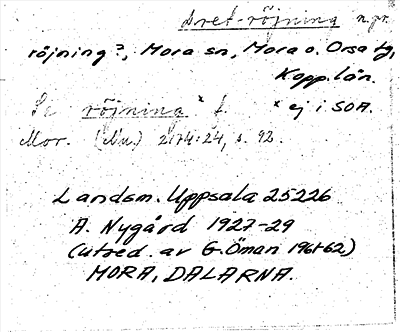 dret-röjning n.pr.
röjning?, Mora sn, Mora o. Orsa tg,
Kopp. län.
Se röjning * f. * ej i SOA.
Mor. (Mu.) 2174:24, s. 92.
Landsm. Uppsala 25226
A. Nygård 1927-29
(utred. av G. Öman 1961-62)
MORA, DALARNA.